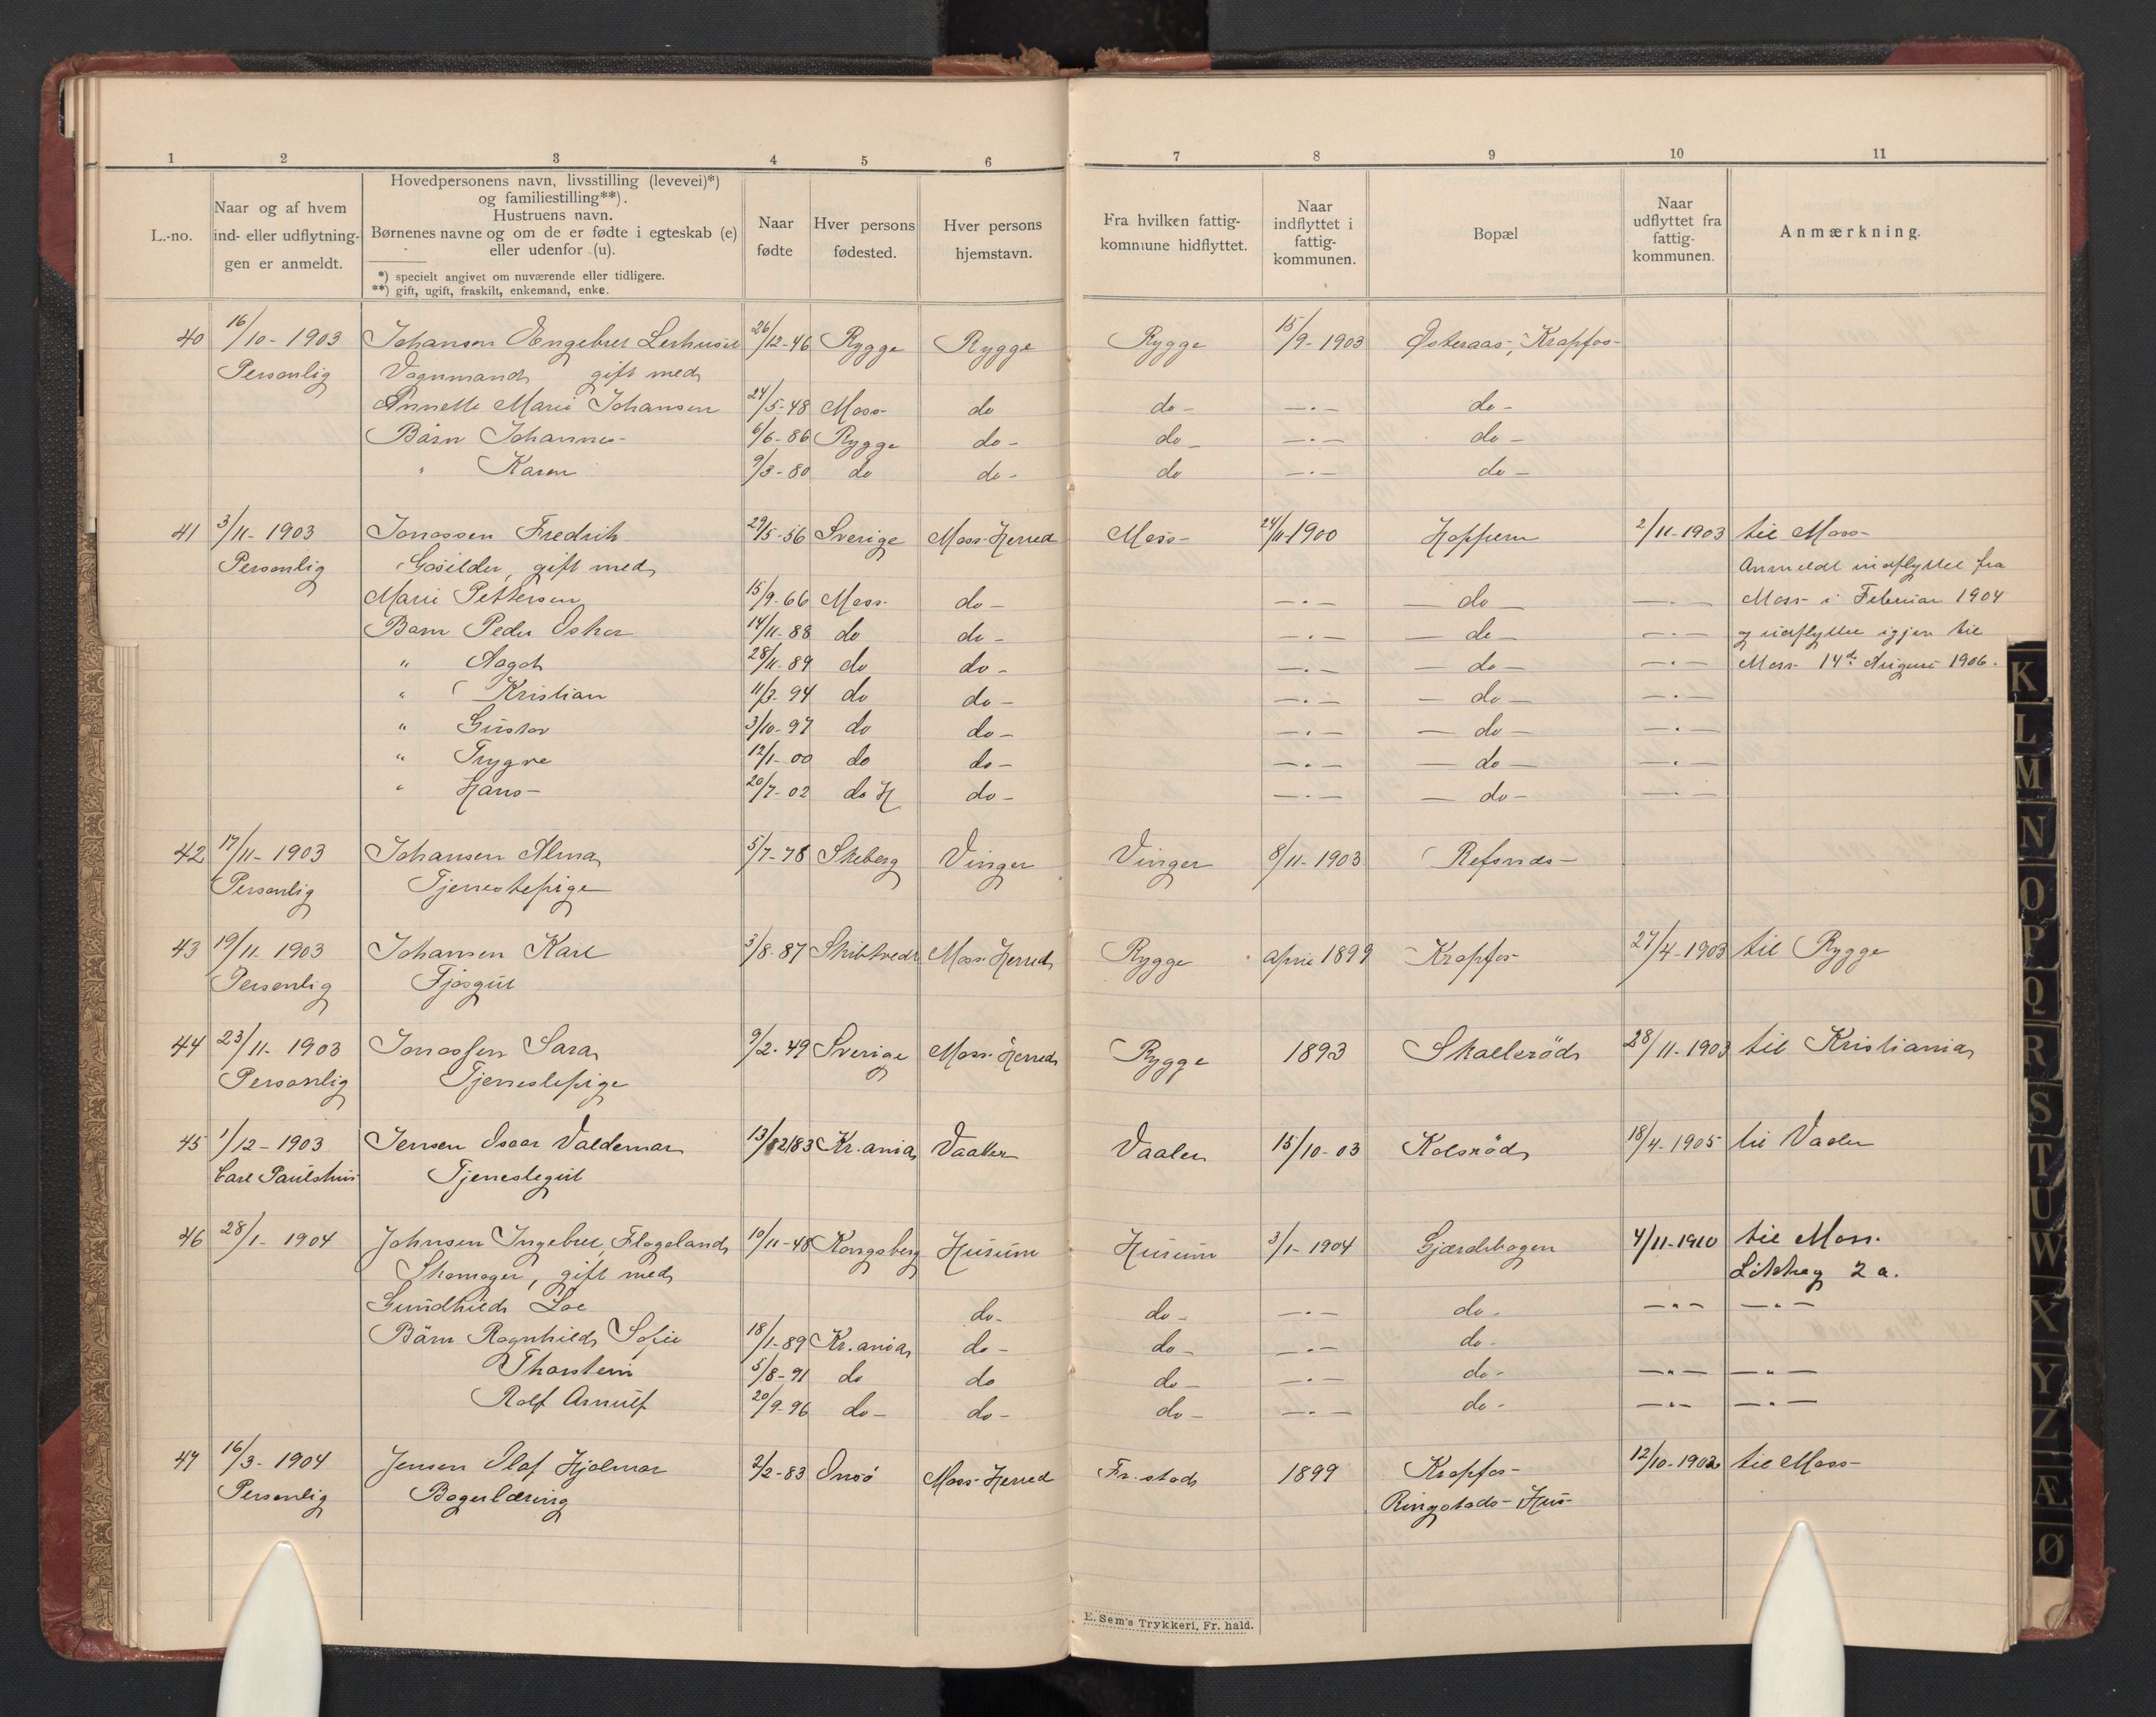 1 2 3 4 5 6 7 8 9 10 11
L.-no.
Naar og af hvem
ind- eller udflytnin-
gen er anmeldt.
Hovedpersonens navn, livsstilling (levevei)*)
og familiestilling**).
Hustruens navn.
Børnenes navne og om de er fødte i egteskab (e)
eller udenfor (u).
*) specielt angivet om nuværende eller tidligere.
**) gift, ugift, fraskilt, enkemand, enke.
Naar
fødte
Hver persons
fødested.
Hver persons
hjemstavn.
Fra hvilken fattig-
kommune hidflyttet.
Naar
indflyttet i
fattig-
kommunen.
Bopæl
Naar
udflyttet fra
fattig-
kommunen.
Anmærkning.
40 16/10-1903 Johansen Engebret Lerhuset 26/12-46 Rygge Rygge Rygge 15/9-1903 Østeraas, Krapfos-
Personlig Vognmand gift med
Annette Marie Johansen 24/5-48 Moss- do do- —.— do-
Børn Johannes- 6/6-86 Rygge do- do- —.— do-
" Karen 9/3-80 do do- do —.— do-
41 3/11-1903 Jonassen Fredrik 29/5-56 Sverige Moss-Herred Moss- 24/11-1900 Hoppern 2/11-1903 til Moss-
Personlig gift med Anmeldt indflyttet fra
Marie Pettersen 15/9-66 Moss- do- —.— — do — —.— Moss- i Februar 1904
Børn Peder Oskar 14/11-88 do do- —.— — do — —.— og udflyttet igjen til
" Aagot 28/11-89 do do- —.— — do — —.— Moss- 14de August 1906.
" Kristian 11/2-94 do do- —.— — do — —.—
" Gustav 3/10-97 do do- —.— — do — —.—
" Trygve 12/1-00 do do- —.— — do — —.—
" Hans- 20/7-02 do H do- —.— — do — —.—
42 17/11-1903 Johansen Alma 5/7-78 Skeberg Vinger Vinger 8/11-1903 Refsnes-
Personlig Tjenestepige
43 19/11-1903 Johansen Karl 3/8-87 Skibtvedt Moss-Herred Rygge April 1899 Krapfos- 27/4-1903 til Rygge
Personlig Fjøsgut
44 23/11-1903 Jonassen Sara 9/2-49 Sverige Moss-Herred Rygge 1893 Skallerød 28/11-1903 til Kristiania
Personlig Tjenestepige
45 1/12-1903 Jensen Oscar Valdemar 13/12 83 Kr.ania Vaaler Vaaler 15/10-03 Kolsrød 18/4-1905 til Vaaler
Carl Paulshus Tjenestegut
46 28/1-1904 Johnsen Ingebret Flageland 10/11-48 Kongsberg Hurum Hurum 3/1-1904 Gjærdebogen 4/11-1910 til Moss.
Skomager, gift med 2 a.
Gundhild Loe do- do- —.— do- —.— —.—
Børn Ragnhild Sofie 18/1-89 Kr.ania do- do- —.— do-
Thorstein 5/8-91 do do do- —.— do- —.— —.—
Rolf Arnulf 20/9-96 do- do- do- —.— do- —.— —.—
47 16/3-1904 Jensen Olaf Hjalmar 2/2-83 Onsø Moss-Herred Fr.stad 1899 Krapfos- 12/10-1902 til Moss-
Personlig Bagerlæring Ringstads-Hus-
E. Sem's Trykkeri, Fr. hald.
K
L
M
N
O
P
Q
R
S
T
U
W
X
Y
Z
Æ
Ø